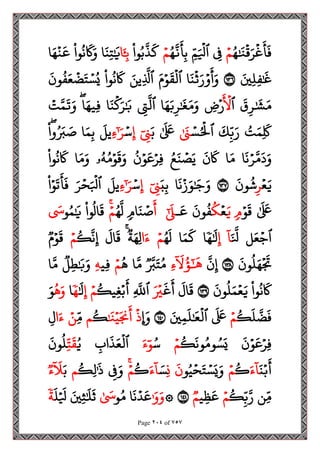 فَأَغْرَقْنَٰهُمْ فِى ٱلْيَمِّ بِأَنَّهُمْ كَذَّبُوا۟ بِـَٔايَٰتِنَا وَكَانُوا۟ عَنْهَا
غَٰفِلِينَ ١٣٦ وَأَوْرَثْنَا ٱلْقَوْمَ ٱلَّذِينَ كَانُوا۟ يُسْتَضْعَفُونَ
مَشَٰرِقَ ٱلْأَرْضِ وَمَغَٰرِبَهَا ٱلَّتِى بَٰرَكْنَا فِيهَا ۖ وَتَمَّتْ
كَلِمَتُ رَبِّكَ ٱلْحُسْنَىٰ عَلَىٰ بَنِىٓ إِسْرَٰٓءِيلَ بِمَا صَبَرُوا۟ ۖ
وَدَمَّرْنَا مَا كَانَ يَصْنَعُ فِرْعَوْنُ وَقَوْمُهُۥ وَمَا كَانُوا۟
يَعْرِشُونَ ١٣٧ وَجَٰوَزْنَا بِبَنِىٓ إِسْرَٰٓءِيلَ ٱلْبَحْرَ فَأَتَوْا۟
عَلَىٰ قَوْمٍ يَعْكُفُونَ عَلَىٰٓ أَصْنَامٍ لَّهُمْ ۚ قَالُوا۟ يَٰمُوسَى
ٱجْعَل لَّنَآ إِلَٰهًا كَمَا لَهُمْ ءَالِهَةٌ ۚ قَالَ إِنَّكُمْ قَوْمٌ
تَجْهَلُونَ ١٣٨ إِنَّ هَٰٓؤُلَآءِ مُتَبَّرٌ مَّا هُمْ فِيهِ وَبَٰطِلٌ مَّا
كَانُوا۟ يَعْمَلُونَ ١٣٩ قَالَ أَغَيْرَ ٱللَّهِ أَبْغِيكُمْ إِلَٰهًا وَهُوَ
فَضَّلَكُمْ عَلَى ٱلْعَٰلَمِينَ ١٤٠ وَإِذْ أَنجَيْنَٰكُم مِّنْ ءَالِ
فِرْعَوْنَ يَسُومُونَكُمْ سُوٓءَ ٱلْعَذَابِ يُقَتِّلُونَ
أَبْنَآءَكُمْ وَيَسْتَحْيُونَ نِسَآءَكُمْ ۚ وَفِى ذَٰلِكُم بَلَآءٌ
مِّن رَّبِّكُمْ عَظِيمٌ ١٤١ ۞ وَوَٰعَدْنَا مُوسَىٰ ثَلَٰثِينَ لَيْلَةً
Page ٢٠٤ of ٢٥٧